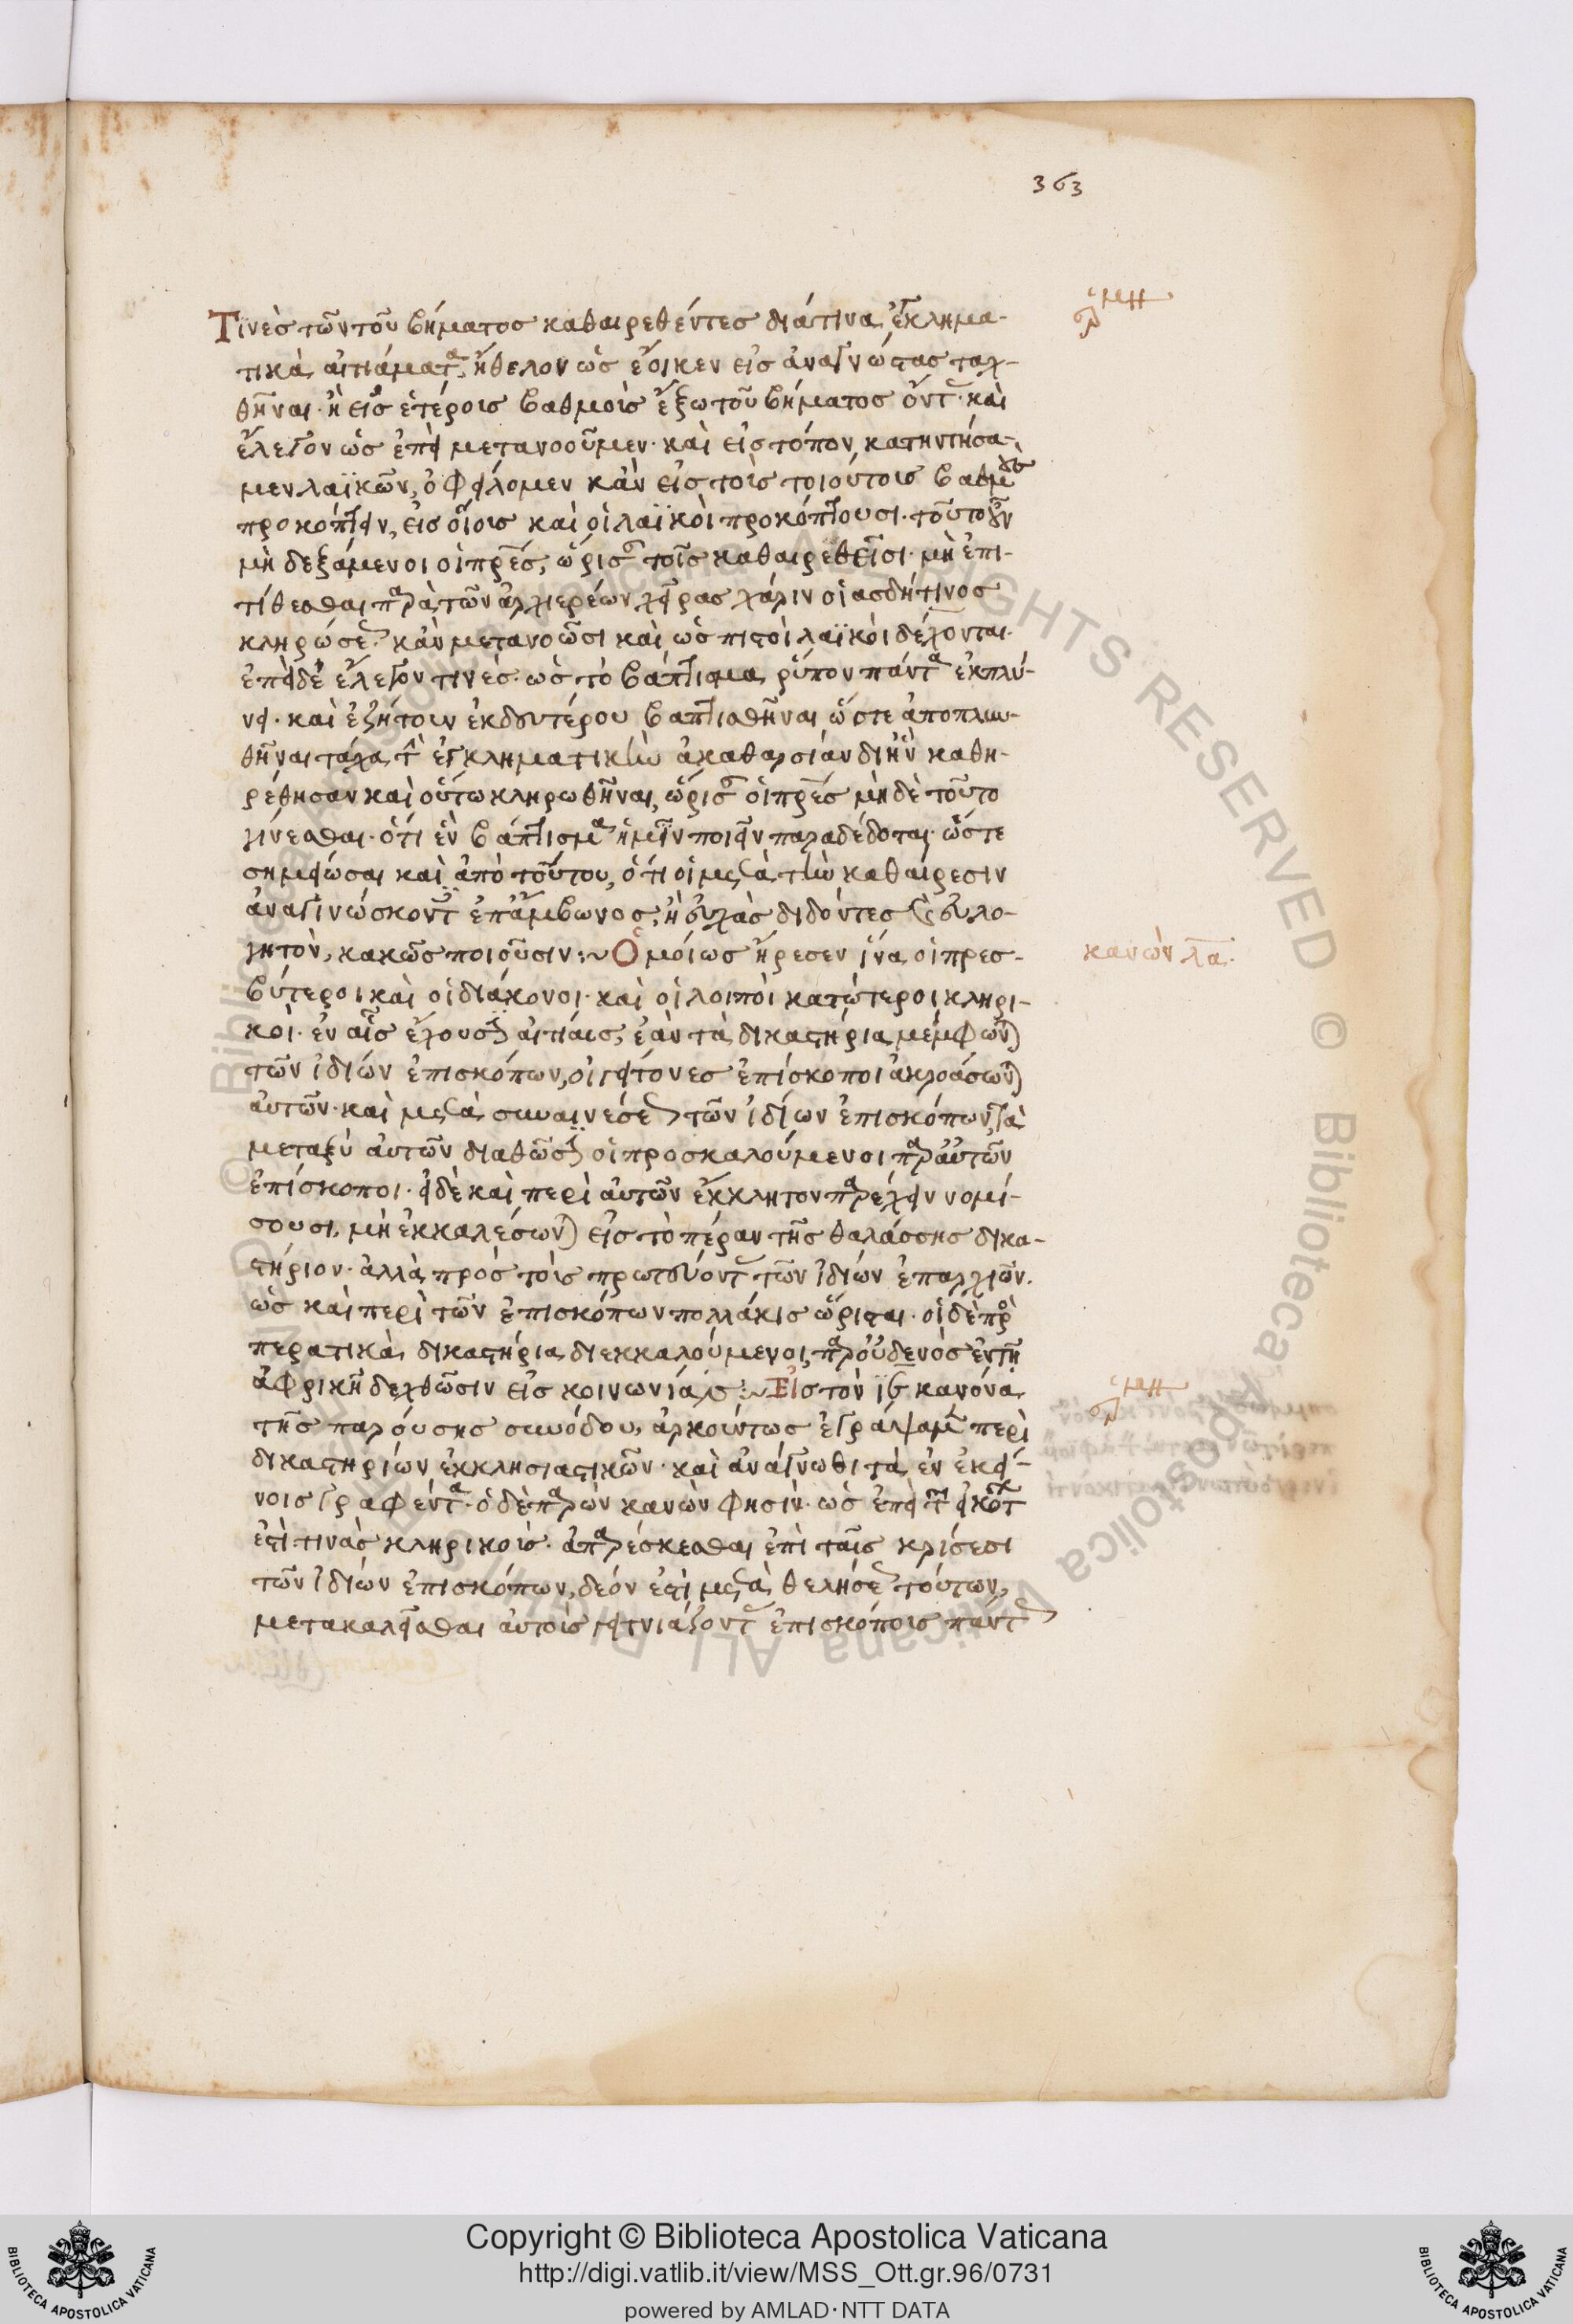 363
ἑρμη
Τινὲς τῶν τοῦ βήματος καθαιρεθέντες διά τινα ἐγκλημα-
τικὰ αἰτιάματα, ἤθελον ὡς ἔοικεν εἰς ἀναγνώστας ταχ-
θῆναι· ἢ εἰς ἑτέροις βαθμοῖς ἔξω τοῦ βήματος ὄντας· καὶ
ἔλεγον ὡς ἐπεὶ μετανοοῦμεν· καὶ εἰς τόπον κατηντήσα-
μεν λαϊκῶν, ὀφείλομεν κἂν εἰς τοῖς τοιούτοις βαθμοὺς
προκόπτειν, εἰς οἵοις καὶ οἱ λαϊκοὶ προκόπτουσι· τοῦτο οὖν
μὴ δεξάμενοι οἱ πρες, ὥρισαν τοῖς καθαιρεθεῖσι· μὴ ἐπι-
τίθεσθαι παρὰ τῶν ἀρχιερέων χεῖρας χάριν οἱασδήτινος
κληρώσεως· κἂν μετανοῶσι καὶ ὡς πιστοὶ λαϊκοὶ δέχονται·
ἐπεὶ δὲ ἔλεγόν τινες· ὡς τὸ βάπτισμα ῥύπον πάντα ἐκπλύ-
νει· καὶ ἐζήτουν ἐκ δευτέρου βαπτισθῆναι ὥστε ἀποπλυν-
θῆναι τάχα τὴν ἐγκληματικὴν ἀκαθαρσίαν δι' ἣν καθη-
ρέθησαν καὶ οὕτω κληρωθῆναι, ὥρισαν οἱ πρες μὴ δὲ τοῦτο
γίνεσθαι· ὅτι ἓν βάπτισμα ἡμῖν ποιεῖν παραδέδοται· ὥστε
σημείωσαι καὶ ἀπὸ τούτου, ὅτι οἱ μετὰ τὴν καθαίρεσιν
ἀναγινώσκοντες ἐπ' ἄμβωνος, ἢ εὐχὰς διδόντες καὶ εὐλο-
γητὸν, κακῶς ποιοῦσιν :~ Ὁμοίως ἤρεσεν ἵνα οἱ πρεσ-
κανὼν λα·
βύτεροι καὶ οἱ διάκονοι· καὶ οἱ λοιποὶ κατώτεροι κληρι-
κοὶ· ἐν αἷς ἔχουσιν αἰτίαις, ἐὰν τὰ δικαστήρια μέμφωνται
τῶν ἰδίων ἐπισκόπων, οἱ γείτονες ἐπίσκοποι ἀκροάσωνται
αὐτῶν· καὶ μετὰ συναινέσεως τῶν ἰδίων ἐπισκόπων, τὰ
μεταξὺ αὐτῶν διαθῶσιν οἱ προσκαλούμενοι παρ' αὐτῶν
ἐπίσκοποι· εἰ δὲ καὶ περὶ αὐτῶν ἔκκλητον παρέχειν νομί-
σουσι, μὴ ἐκκαλέσωνται εἰς τὸ πέραν τῆς θαλάσσης δικα-
στήριον· ἀλλὰ πρὸς τοῖς πρωτεύοντας τῶν ἰδίων ἐπαρχιῶν·
ὡς καὶ περὶ τῶν ἐπισκόπων πολλάκις ὥρισται· οἱ δὲ πρὸς
περατικὰ δικαστήρια διεκκαλούμενοι, παρ' οὐδενὸς ἐν τῇ
ἀφρικῇ δεχθῶσιν εἰς κοινωνίαν :~ Εἰς τὸν ιβ κανόνα
ἑρμη
τῆς παρούσης συνόδου, ἀρκούντως ἐγράψαμεν περὶ
δικαστηρίων ἐκκλησιαστικῶν· καὶ ἀνάγνωθι τὰ ἐν ἐκεί-
νοις γραφέντα· ὁ δὲ παρὼν κανών φησιν· ὡς ἐπεὶ
ἐστὶ τινὰς κληρικοῖς· ἀπαρέσκεσθαι ἐπὶ ταῖς κρίσεσι
τῶν ἰδίων ἐπισκόπων, δέον ἐστὶ μετὰ θελήσεως τούτων,
μετακαλεῖσθαι αὐτοῖς γειτνιάζοντας ἐπισκόποις πάντως
Copyright © Biblioteca Apostolica Vaticana
http://digi.vatlib.it/view/MSS_Ott.gr.96/0731
powered by AMLAD·NTT DATA
BIBLIOTECA APOSTOLICA VATICANA
BIBLIOTECA APOSTOLICA VATICANA